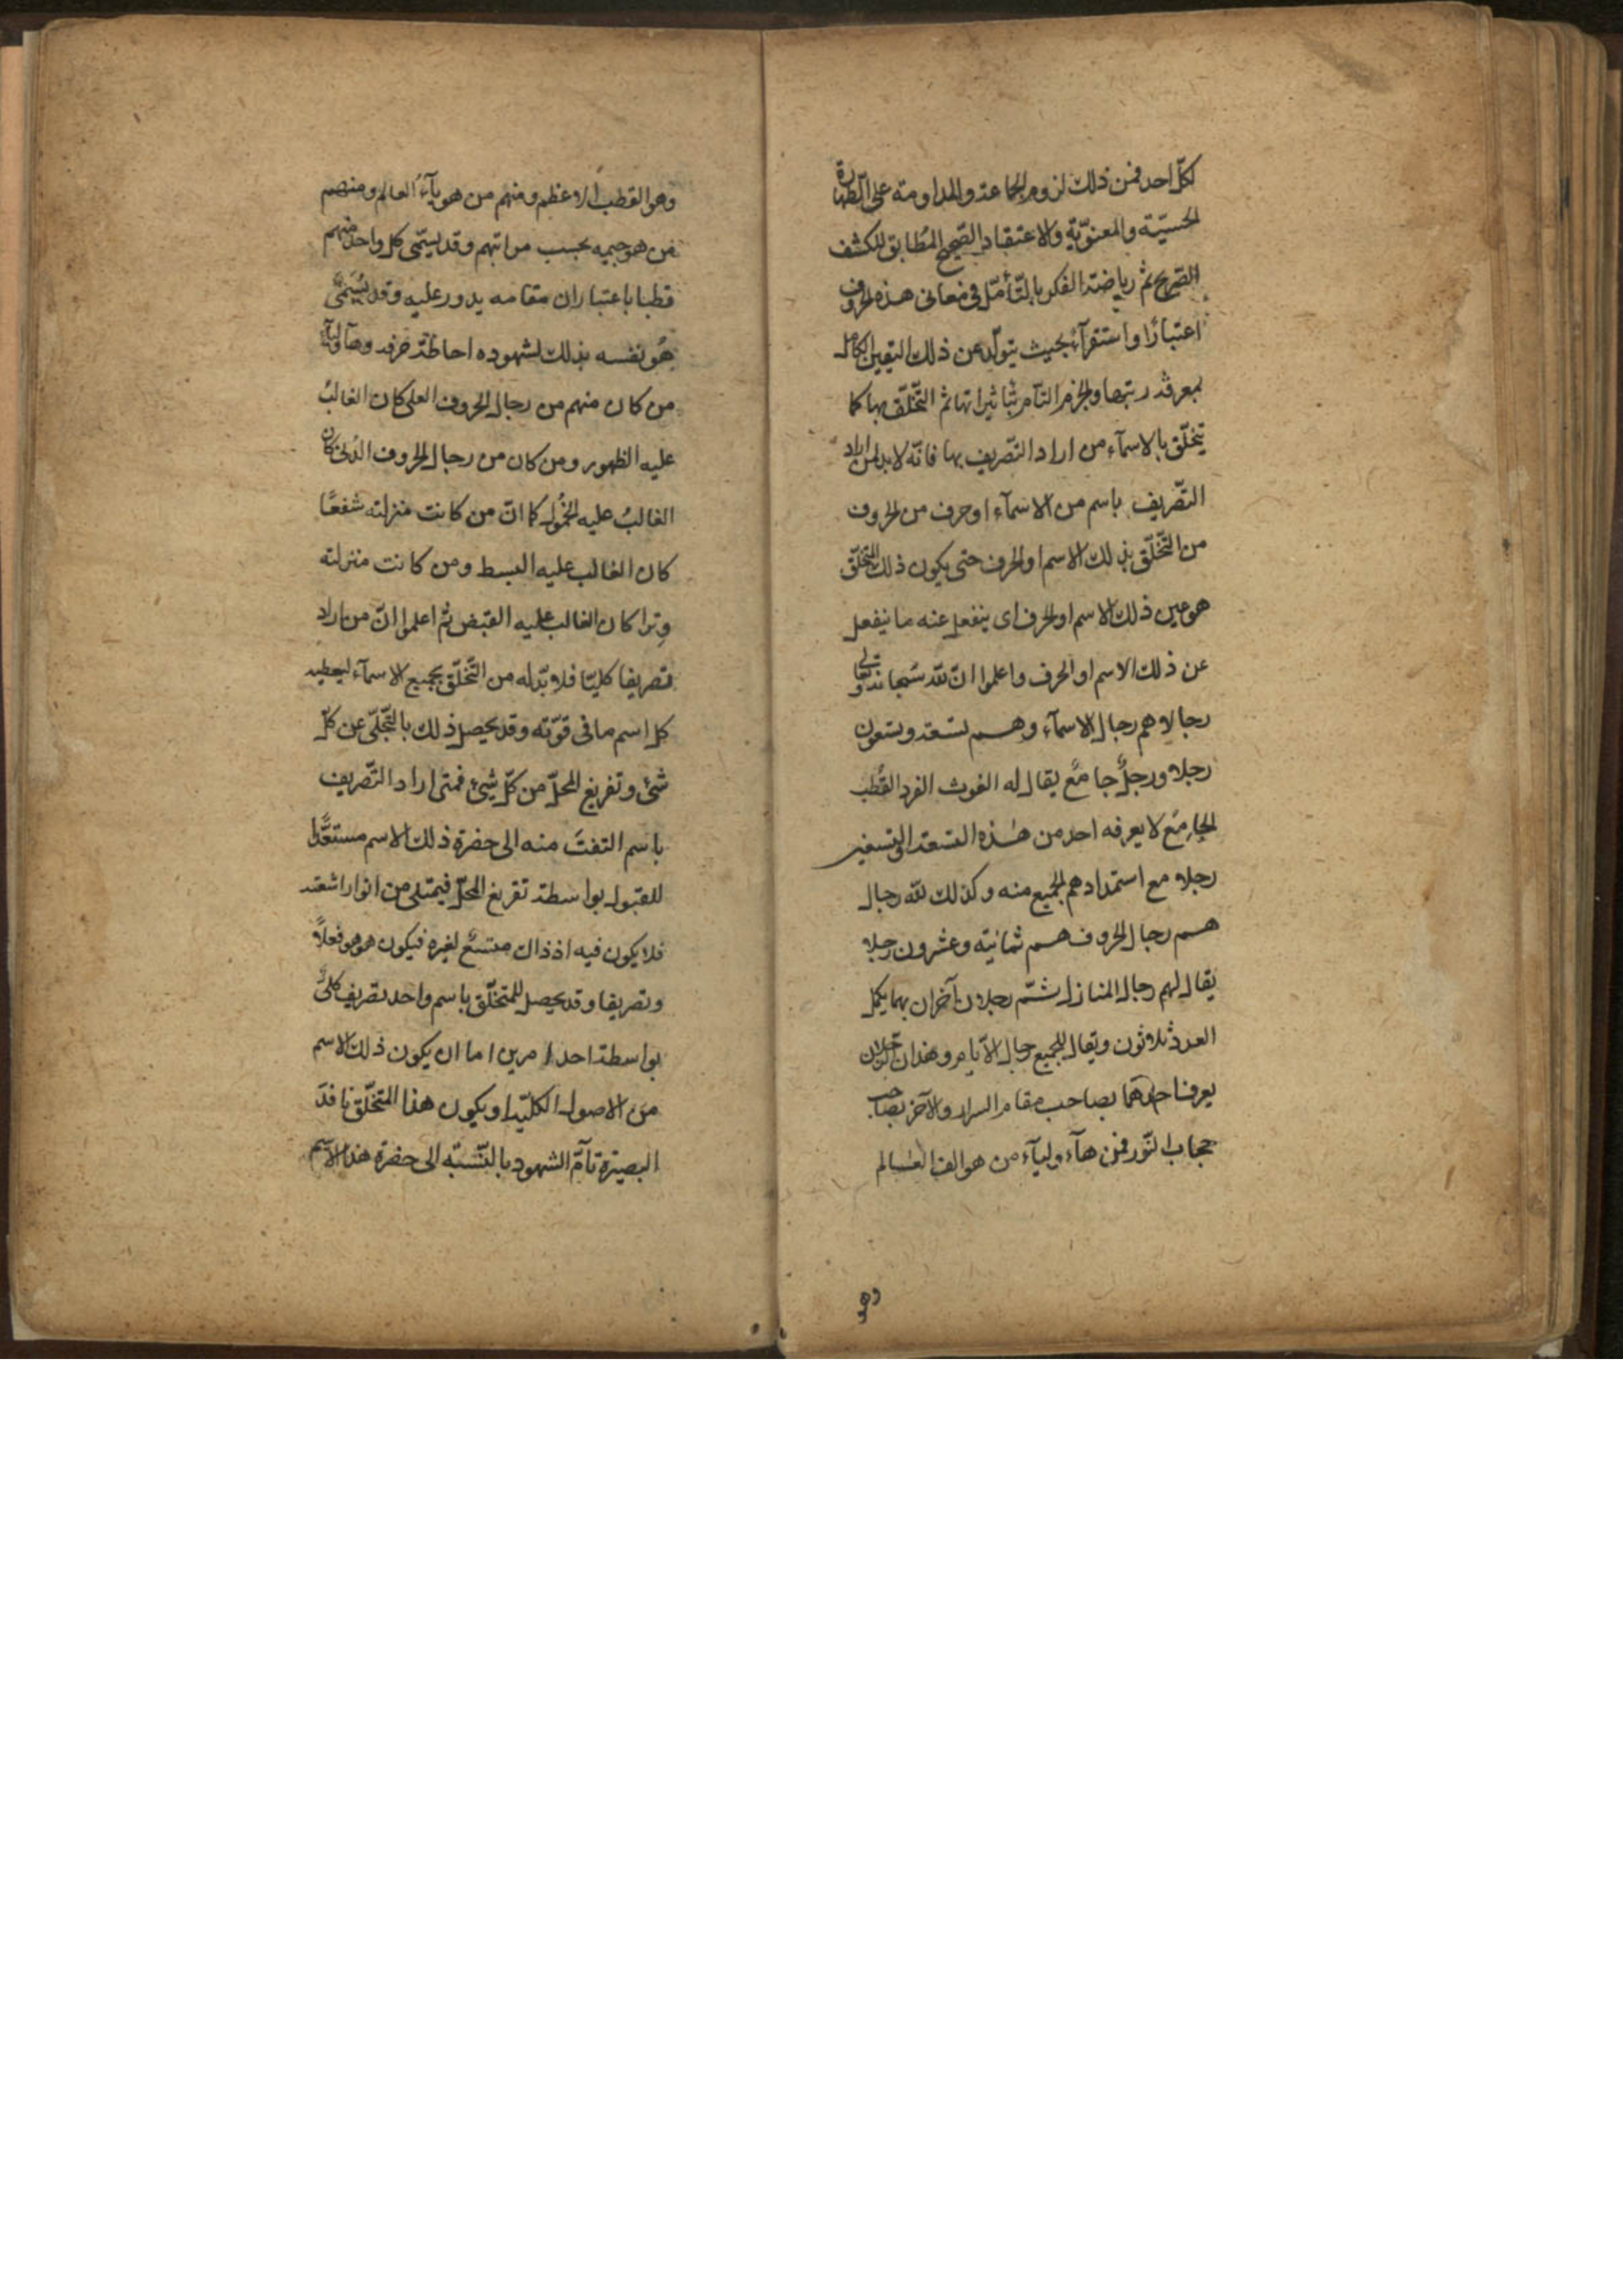 لكلّ احد فمن ذلك لزوم الجماعة والمداومة على الطّهارة
الحسيّة والمعنويّة والاعتقاد الصّحيح المُطابق للكشف
الصّريح ثم رياضة الفكر بالتّأمّل فى معانى هذه الحروف
اعتبارًا واستقرآء بحيث يتولّد عن ذلك اليقين الكامل
بمعرفة رتبها والجزم التآم بتاثيراتها ثم التّخلّق بها كما
يتخلّق بالاسمآء من اراد التّصريف بها فانّه لا بد لمن اراد
التّصريف باسم من الاسمآء او حرف من الحروف
من التّخلّق بذلك الاسم او الحرف حتى يكون ذلك المتخلّق
هو عين ذلك الاسم او الحرف اى ينفعل عنه ما ينفعل
عن ذلك الاسم او الحرف واعلموا انّ للّه سُبحانه وتعالى
رجالا هم رجال الاسمآء وهم تسعة وتسعون
رجلا ورجلٌ جامعٌ يقال له الغوث الفرد القُطب
الجامِع لا يعرفه احد من هٰذه التسعة والتسعين
رجلا مع استمدادهم الجميع منه وكذلك للّه رجال
هم رجال الحروف هم ثمانية وعشرون رجلا
يقال لهم رجال المنازل ثمّ رجلان آخران بهما يكمل
العدد ثلاثون ويقال للجميع رجال الآيام وهذان الرّجلان
يعرف احدهما بصاحب مقام السرار والآخر بصاحب
حجاب النّور فمن هآء ولآء من هو الف العالم
وهو
وهو القطب الاعظم ومنهم من هو بآءُ العالم ومنهم
من هو جيمه بحسب مراتبهم وقد يسمّى كل واحد منهم
قطبا باعتبار ان مقامه يدور عليه وقد يُسَمّى
هُو نفسه بذلك لشهوده احاطة حرفه وهآولآء
من كان منهم من رجال الحروف العلى كان الغالبُ
عليه الظهور ومن كان من رجال الحروف الدُنى كان
الغالبُ عليه الخُمُول كما انّ من كانت منزلته شفعًا
كان الغالب عليه البسط ومن كانت منزلته
وِترا كان الغالب عليه القبض ثم اعلموا انّ من اراد
تصريفا كليّا فلا بدّ له من التّخلّق بجميع الاسمآء ليعطيه
كل اسم ما فى قوّته وقد يحصل ذلك بالتّخلّى عن كلّ
شئ وتفريغ المحلّ من كلّ شيئ فمتى اراد التّصريف
باسم التفتَ منه الى حضرة ذلك الاسم مستعدًّا
للقبول بواسطة تفريغ المحلّ فيمتلى من انوار اشعته
فلا يكون فيه اذ ذاك متسعٌ لغيره فيكون هو هو فعلاً
وتصريفا وقد يحصل للمتخلّق باسم واحد تصريف كلىٌّ
بواسطة احد امرين اما ان يكون ذلك الاسم
من الاصول الكليّة او يكون هذا المتخلّق نافذَ
البصيرة تآمّ الشهود بالنّسبة الى حضرة هذا الآسم